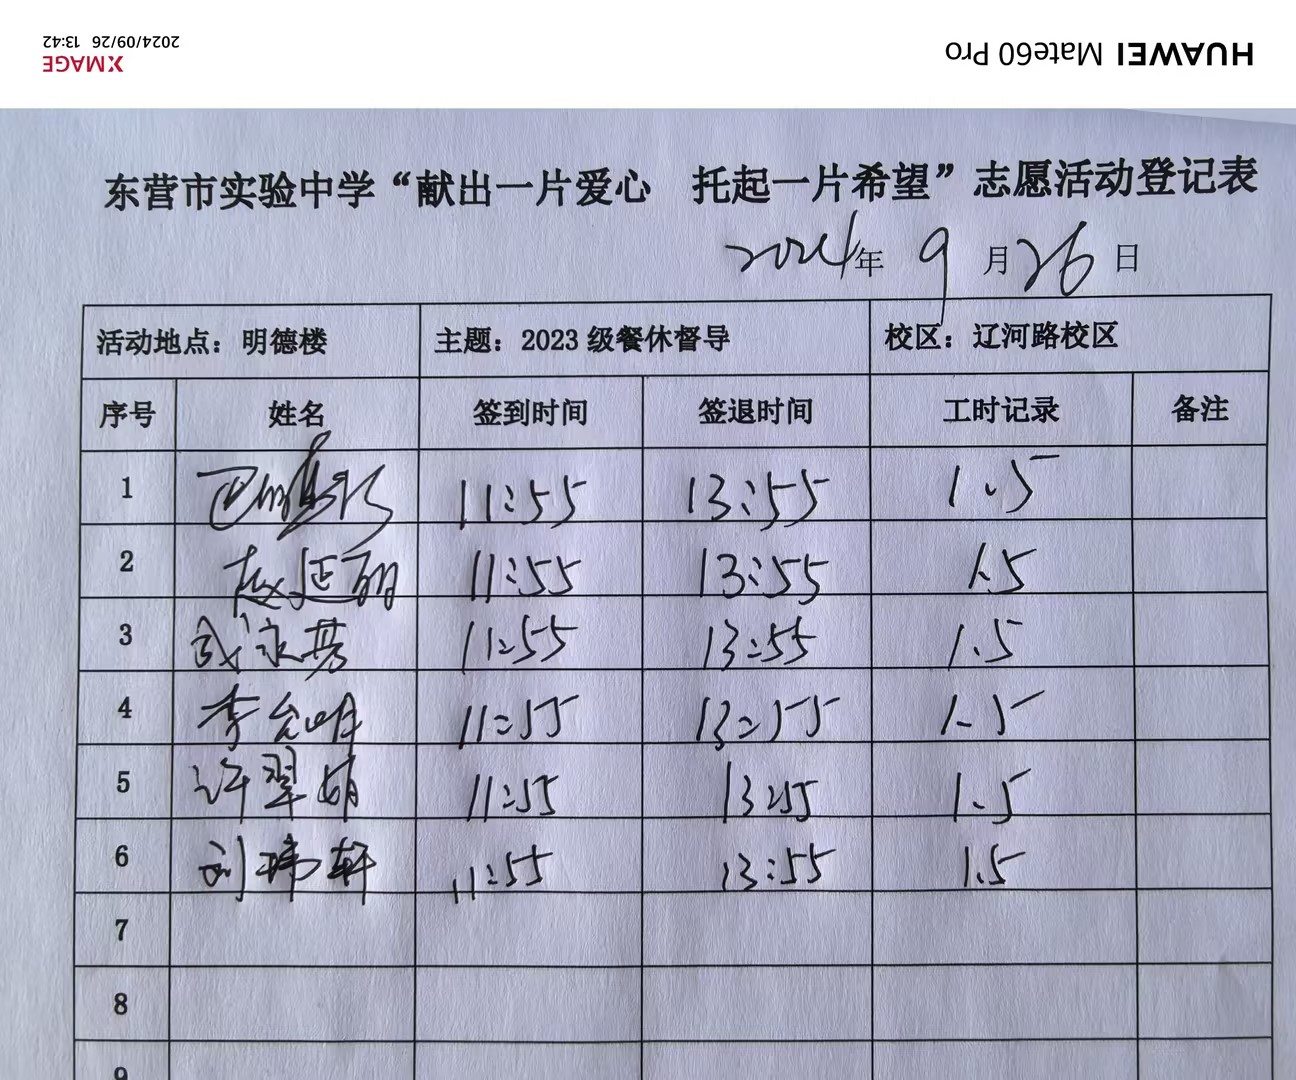 HUAWEI Mate60 Pro
XMAGE
2024/09/26 13:42
东营市实验中学“献出一片爱心 托起一片希望”志愿活动登记表
2024年 9 月 26 日
活动地点：明德楼 主题：2023 级餐休督导 校区：辽河路校区
序号 姓名 签到时间 签退时间 工时记录 备注
1 11:55 13:55 1.5
2 赵延丽 11:55 13:55 1.5
3 11:55 13:55 1.5
4 李允明 11:55 13:55 1.5
5 许翠娟 11:55 13:55 1.5
6 刘玮轩 11:55 13:55 1.5
7
8
9